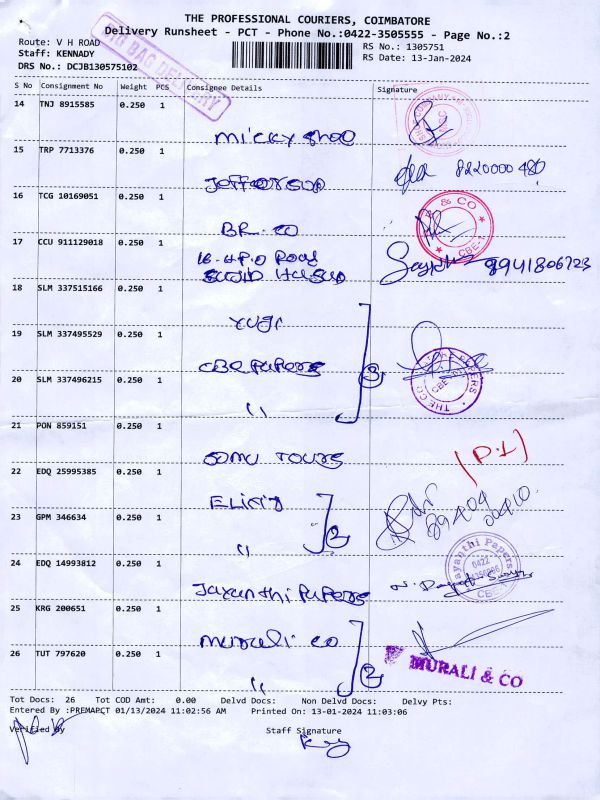 THE PROFESSIONAL COURIERS, COIMBATORE
Delivery Runsheet - PCT - Phone No.:0422-3505555 - Page No.:2
Route: V H ROAD
Staff: KENNADY
DRS No.: DCJB130575102
BIG BAG DELIVERY
RS No.: 1305751
RS Date: 13-Jan-2024
S No Consignment No Weight PCS Consignee Details Signature
14 TNJ 8915585 0.250 1
micky shoe
15 TRP 7713376 0.250 1
8220000480
16 TCG 10169051 0.250 1
BR. CO
& CO
CBE-1
17 CCU 911129018 0.250 1
16-H.P.O Road
8941806723
18 SLM 337515166 0.250 1
yugi
19 SLM 337495529 0.250 1
CBE Papers
3
THE CO PAPERS
CBE
20 SLM 337496215 0.250 1
"
21 PON 859151 0.250 1
Somu Tours
(D.L)
22 EDQ 25995385 0.250 1
23 GPM 346634 0.250 1
"
2
24 EDQ 14993812 0.250 1
Jayanthi Papers
Jayanthi Papers
0422
CBE-1
25 KRG 200651 0.250 1
Murali co
26 TUT 797620 0.250 1
"
2
MURALI & CO
Tot Docs: 26 Tot COD Amt: 0.00 Delvd Docs: Non Delvd Docs: Delvy Pts:
Entered By :PREMAPCT 01/13/2024 11:02:56 AM Printed On: 13-01-2024 11:03:06
Verified By Staff Signature